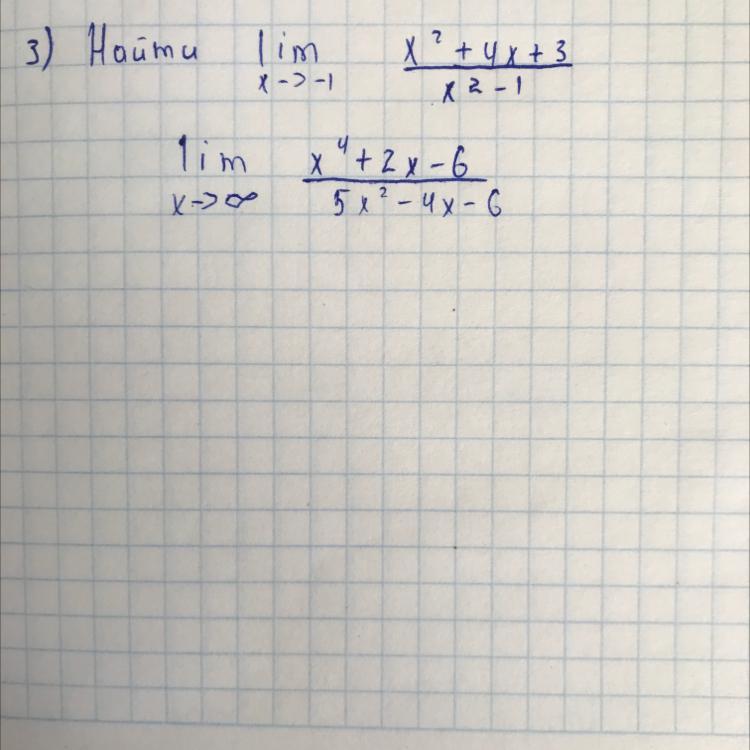 3) Найти lim x->-1 x²+4x+3 / x²-1
lim x->∞ x⁴+2x-6 / 5x²-4x-6